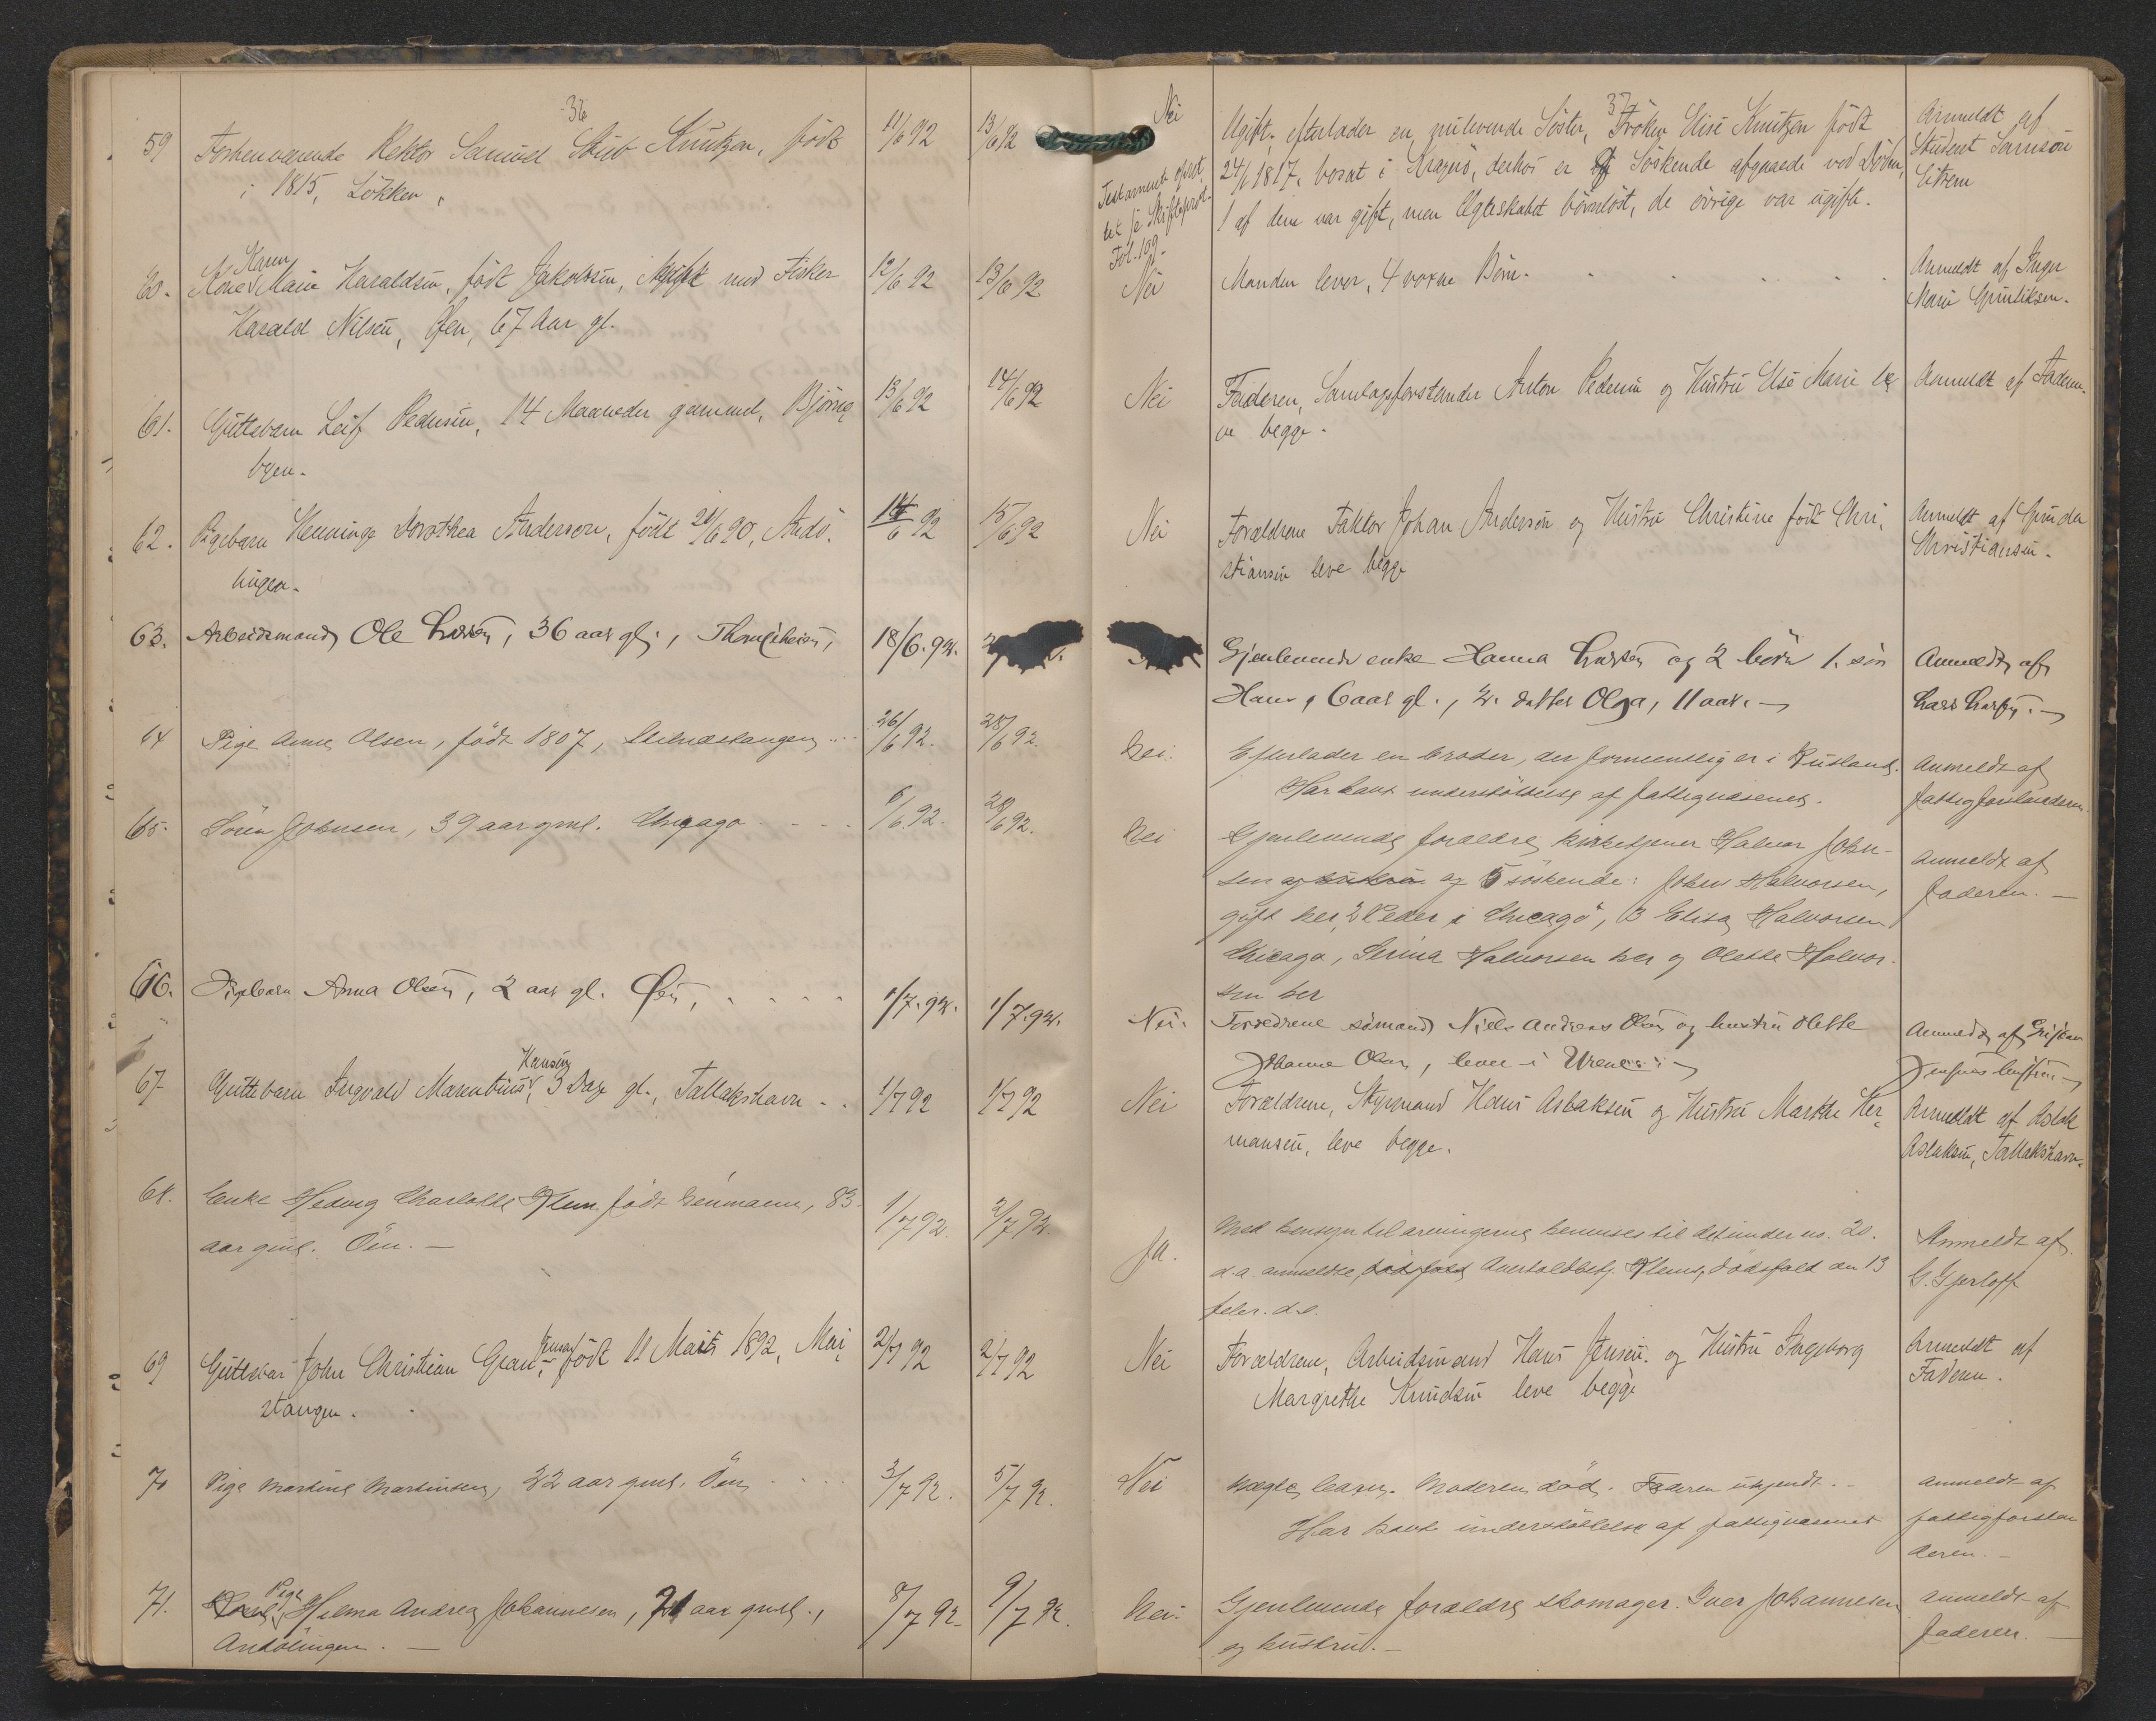 36
59 Forhenværende Rektor Samuel Stub Knutzen, født 11/6 92 13/6 92
i 1815, Løkken,
60. Kone Karen Marie Haraldsen, født Jakobsen, gift med Fisker 12/6 92 13/6 92
Harald Nilsen, Øen, 67 Aar gl.
61. Guttebarn Leif Pedersen, 14 Maaneder gammel, Bjørne 13/6 92 14/6 92
byen.
62. Pigebarn Henninge Dorothea Anderson, født 21/6 90, Andö. 14/6 92 15/6 92
lingen.
63. Arbeidsmand Ole Larsen, 36 aar gl., 18/6.92.
64 Pige Anne Olsen, født 1807, 26/6 92. 28/6 92.
65. Sören Johnsen, 39 aar gml. Chicago 6/6 92. 28/6 92.
66. Pigebarn Anna Olsen, 2 aar gl. Øen, 1/7.92. 1/7.92.
67. Guttebarn Ingvald Marentius Hansen, 3 Dage gl., Tallakshavn 1/7 92 1/7 92
68. Enke Hedvig Charlotte Klem født 83 1/7 92. 2/7 92.
aar gml. Öen.
69 Guttebarn John Christian Gran Jensen, født 11 Marts 1892, Mai 2/7 92 2/7 92
stangen.
70 Pige Martine Martinsen, 32 aar gml. Öen 3/7 92. 5/7 92.
71. Pige Hilma Andrea Johannesen, 21 aar gml., 8/7 92. 9/7 92.
Andölingen.
37
Nei Ugift, efterlader en nulevende Söster, Fröken Elise Knutzen født Anmeldt af
Testamente oplæst 24/1 1817, bosat i Kragerö, derhos er Söskende afgaaede ved Döden, Student Samson
se Skifteprot. 1 af dem var gift, men Ægteskabet börnlöst, de övrige var ugifte. Eitrem
Fol. 109.
Nei Manden lever, 4 voxne Börn. Anmeldt af Inger
Marie Gundriksen.
Nei Faderen, Samlagsforstander Anton Pedersen og Hustru Else Marie le Anmeldt af Faderen.
ve begge.
Nei Forældrene Faktor Johan Anderson og Hustru Christine född Chri Anmeldt af Gunda
stiansen leve begge Christiansen.
Gjenlevende enke Hanna Larsen og 2 börn 1. sön Anmeldt af
Hans, 6 aar gl., 2. datter Olga, 11 aar. Lars Larsen.
Nei. Efterlader en broder, der formentlig er i Rusland. Anmeldt af
Har havt understöttelse af fattigvæsenet. fattigforstanderen.
Nei Gjenlevende forældre kirketjener Halvor John- Anmeldt af
sen og hustru og 5 söskende: John Halvorsen, faderen.
gift her, 2 Peder i Chicago, 3 Elisa Halvorsen
Chicago, Serina Halvorsen her og Olette Halvor-
sen her
Nei. Forældrene sömand Niels Andreas Olsen og hustru Olette Anmeldt af
Johanne Olsen, lever i
Nei Forældrene, Styrmand Hans Aslaksen og Hustru Marthe Her Anmeldt af Aslak
mansen, leve begge. Aslaksen, Tallakshavn.
Ja. Med hensyn til arvingerne henvises til det under no. 20. Anmeldt af
d.a. anmeldte dödsfald Klems, dödsfald den 13 G. Gjerloff
febr. d.a.
Nei Forældrene, Arbeidsmand Hans Jensen og Hustru Ingeborg Anmeldt af
Margrethe Knudsen leve begge Faderen.
Nei uægte barn. Moderen död. Faderen ukjendt. Anmeldt af
Har havt understöttelse af fattigvæsenet fattigforstan
deren.
Nei. Gjenlevende forældre skomager Iver Johannesen Anmeldt af
og hustru. faderen.